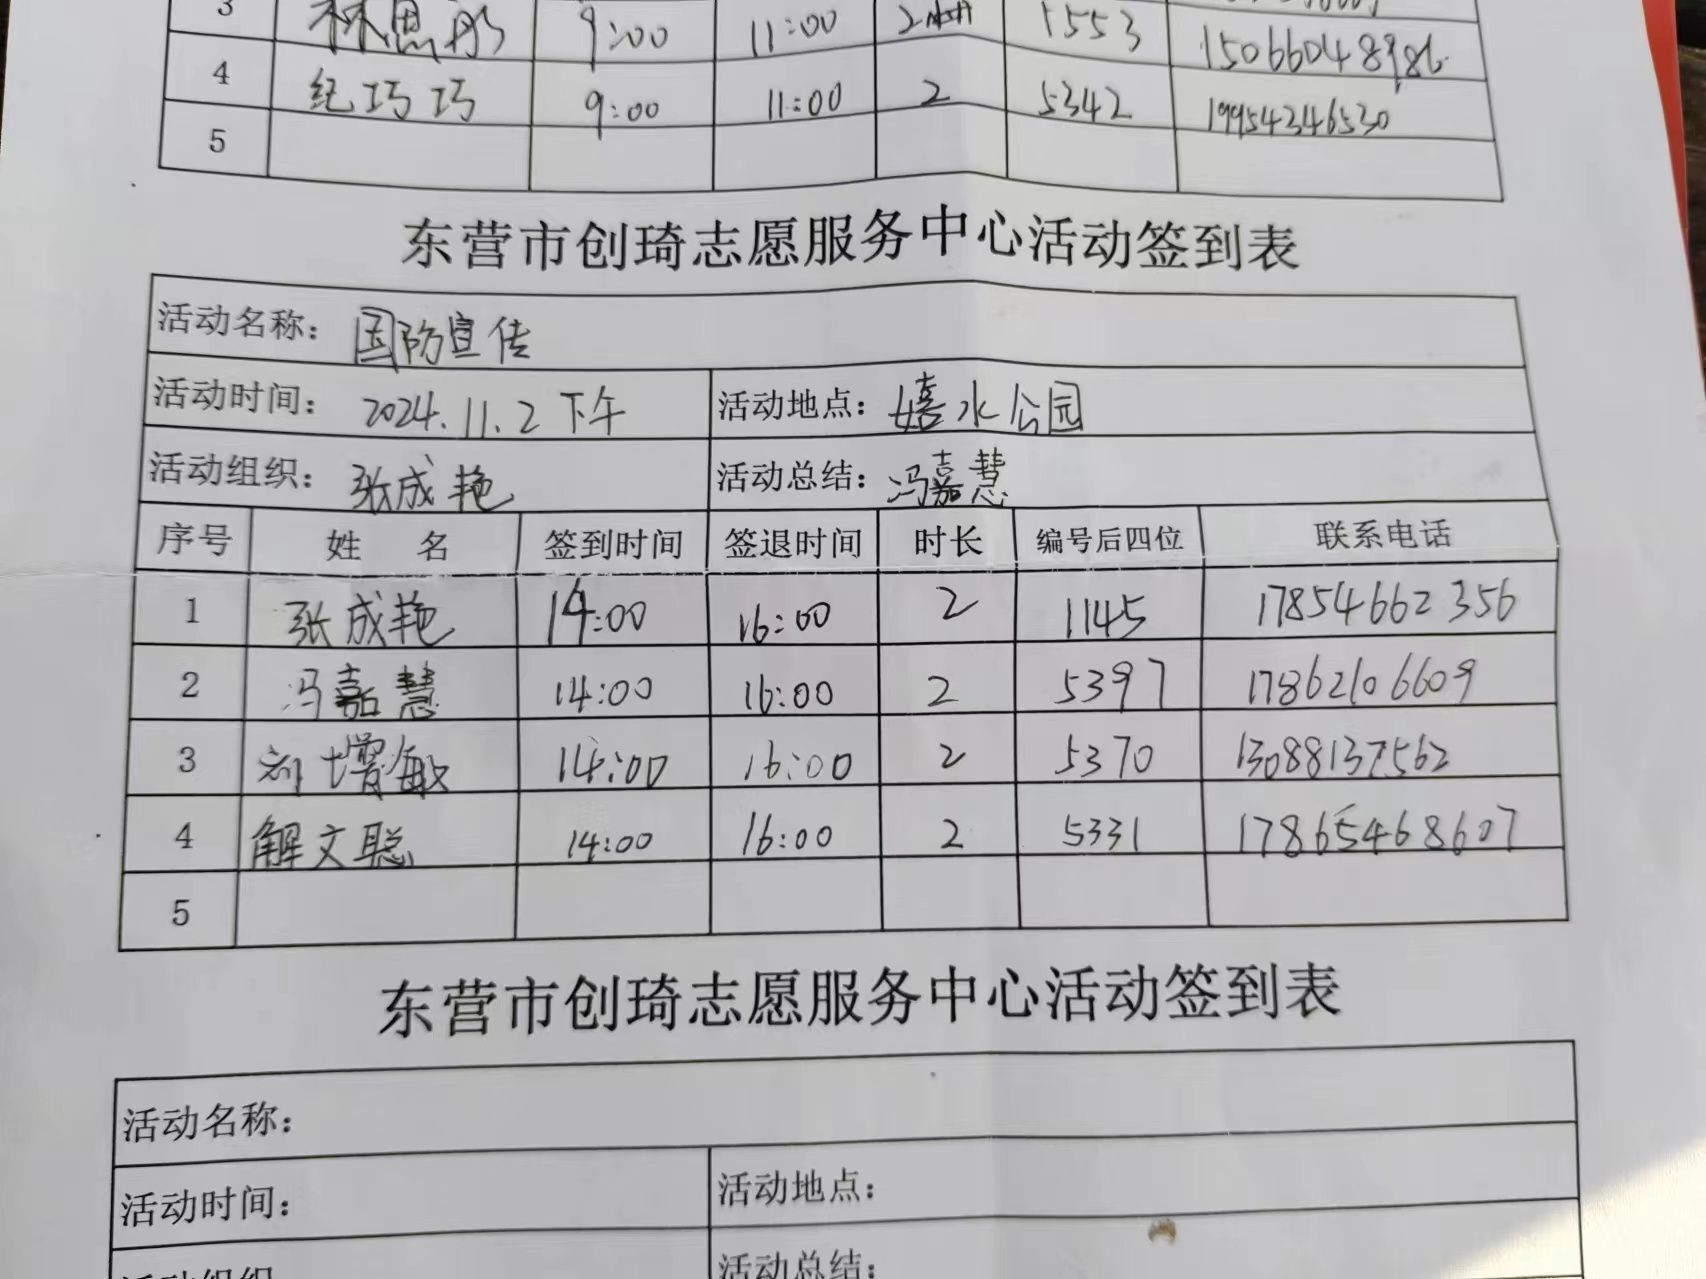 3 林思彤 9:00 11:00 2小时 1553 15066048986
4 纪巧巧 9:00 11:00 2 5342 19954246530
5
东营市创琦志愿服务中心活动签到表
活动名称: 国防宣传
活动时间: 2024.11.2下午 活动地点: 嬉水公园
活动组织: 张成艳 活动总结: 冯嘉慧
序号 姓 名 签到时间 签退时间 时长 编号后四位 联系电话
1 张成艳 14:00 16:00 2 1145 17854662356
2 冯嘉慧 14:00 16:00 2 5397 17862106609
3 刘增敏 14:00 16:00 2 5370 13088137562
4 解文聪 14:00 16:00 2 5331 17865468607
5
东营市创琦志愿服务中心活动签到表
活动名称:
活动时间: 活动地点:
活动组织 活动总结: